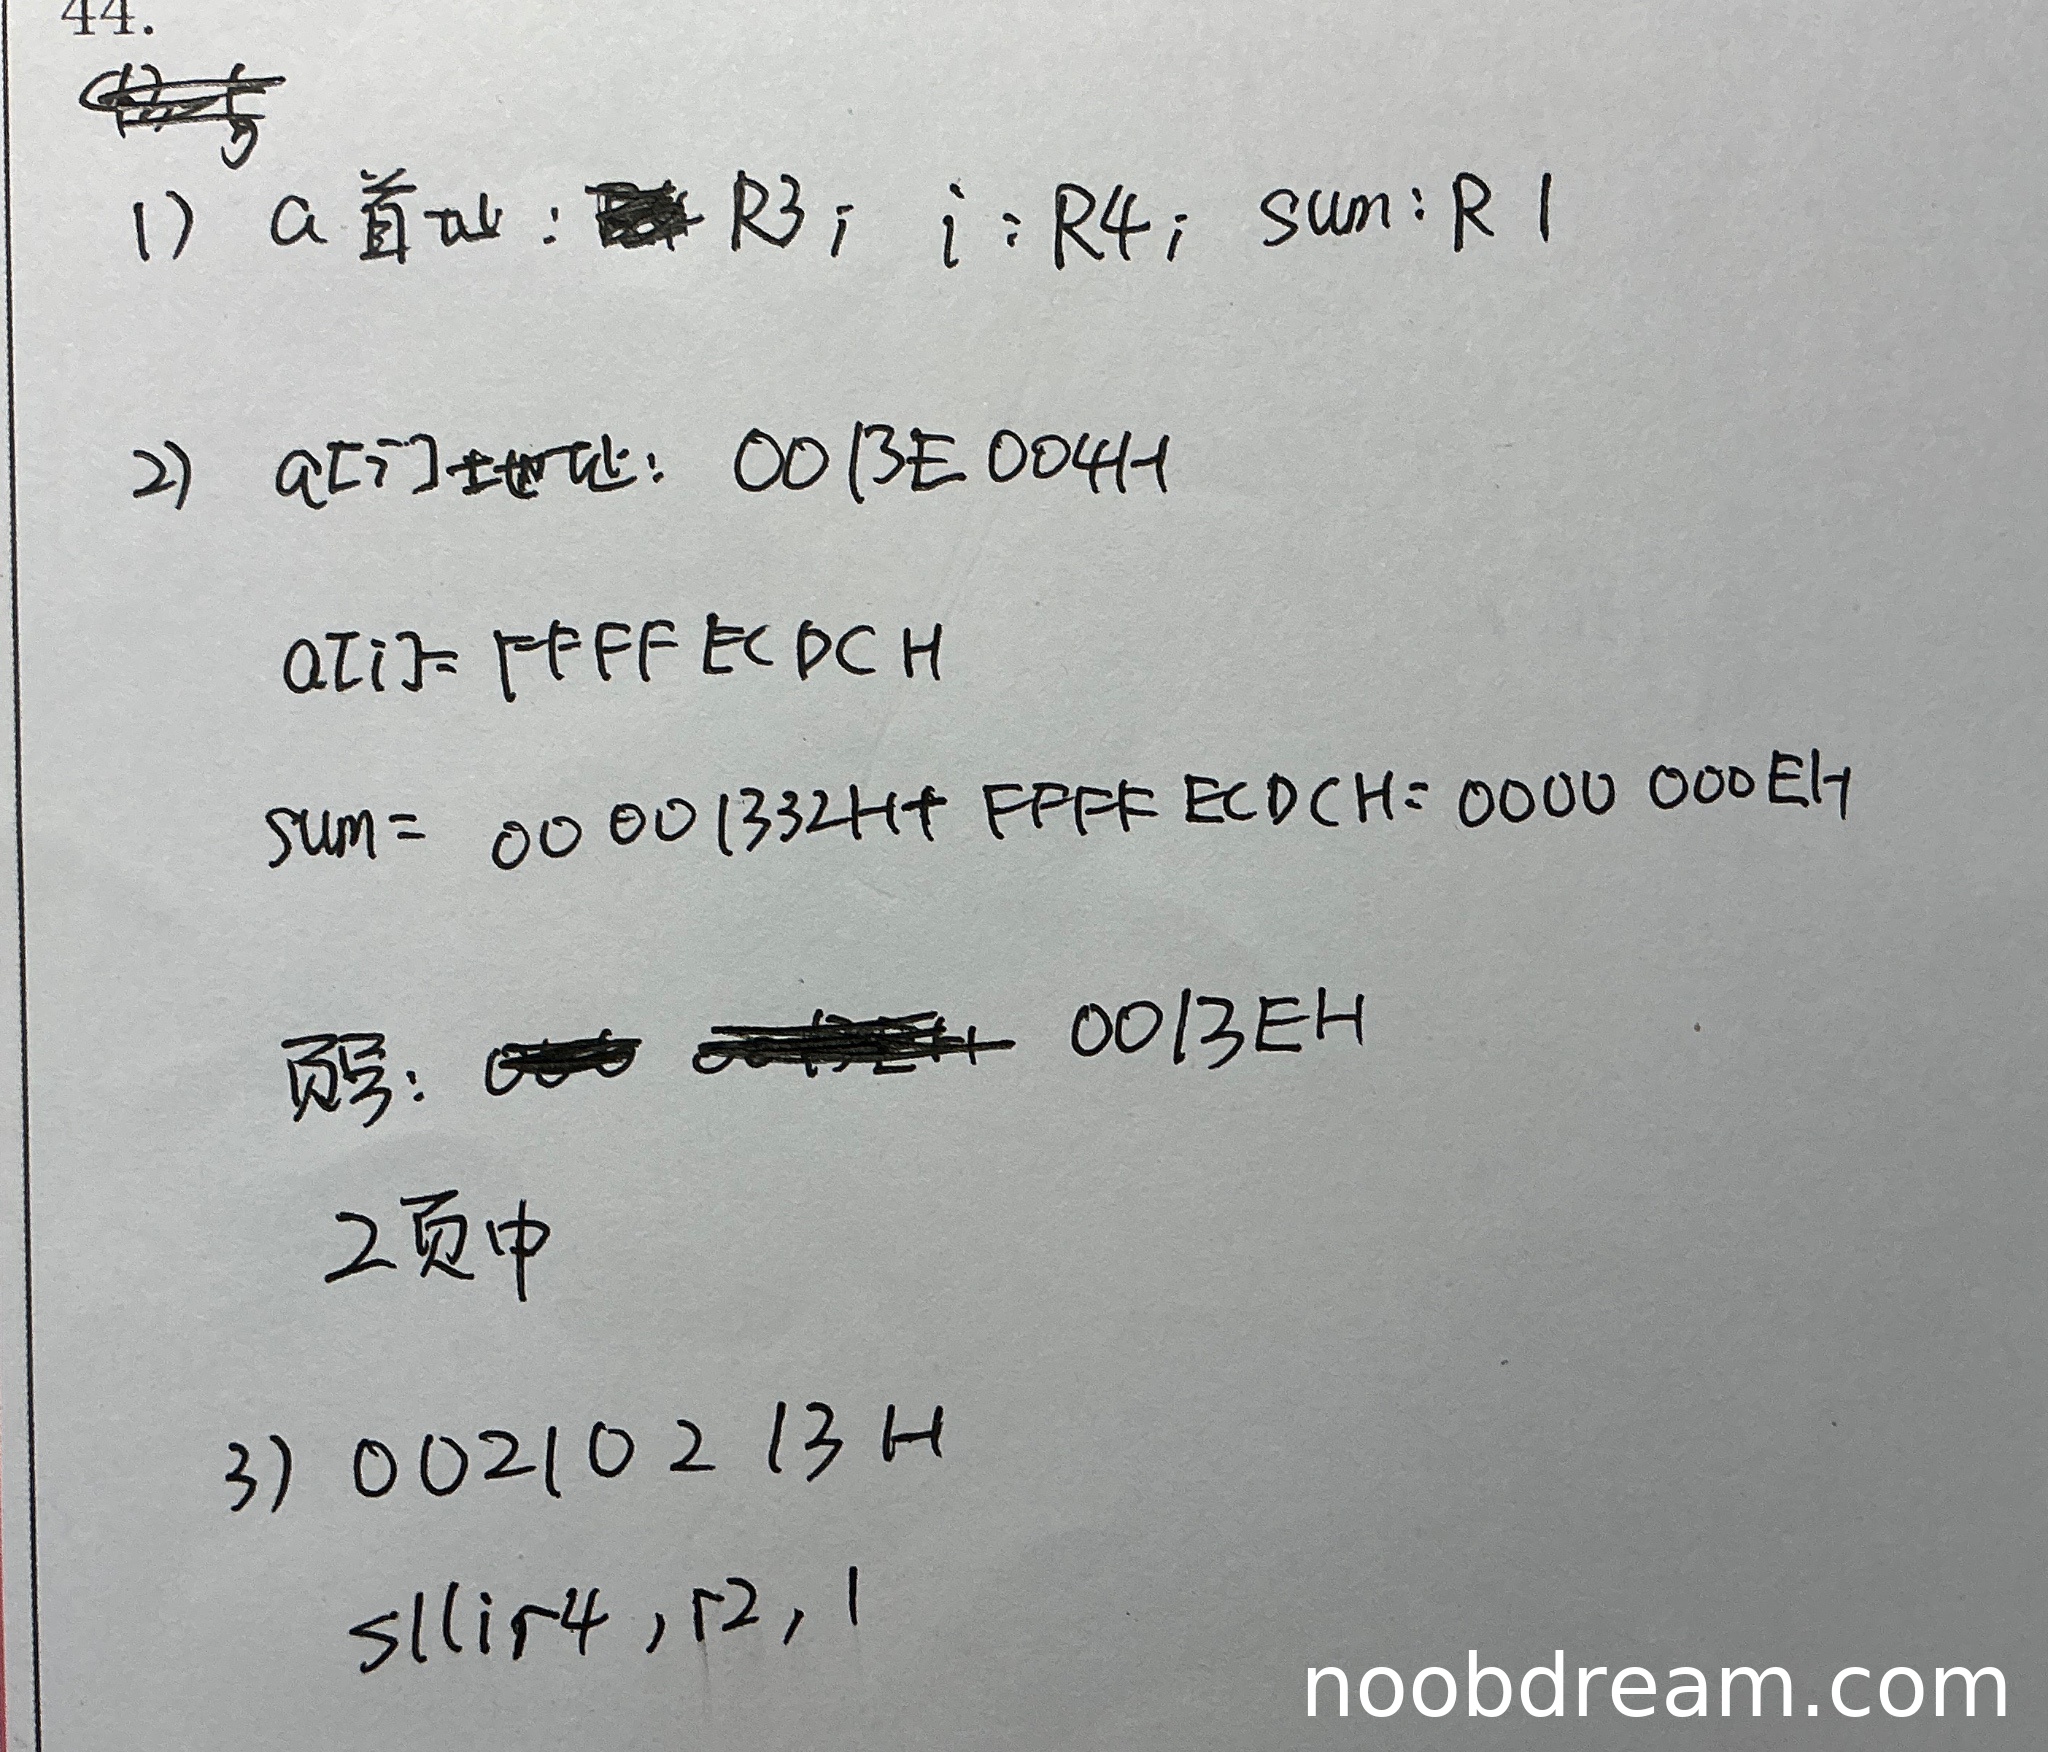 44.
1) a首址: R3; i: R4; sum: R1
2) a[i]地址: 0013E004H
a[i]= FFFF ECDCH
sum= 00001332H+ FFFF ECDCH= 0000 000EH
页号: 0013EH
2页中
3) 00210213H
slli r4, r2, 1
noobdream.com